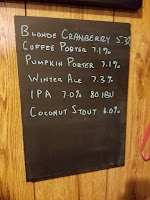 Blonde Cranberry 5.3%
Coffee Porter 7.1%
Pumpkin Porter 7.1%
Winter Ale 7.3%
IPA 7.0% 80 IBU
Coconut Stout 6.0%